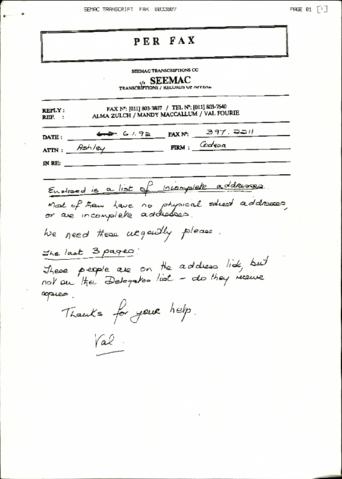 SEMAC TRANSCRIPT FAX 6033807 PAGE 01
PER FAX
SEEMAC TRANSCRIPTIONS CC
SEEMAC
TRANSCRIPTIONS / RECORDS OF
REPLY : FAX Nº: [011] 603-3807 / TEL Nº: [011] 603-7640
REF. : ALMA ZULCH / MANDY MACCALLUM / VAL FOURIE
DATE : 6.1.92 FAX Nº: 397.2211
ATTN : Ashley FIRM : Codesa
IN RE:
Enclosed is a list of incomplete addresses.
Most of them have no physical street addresses,
or are incomplete addresses.
We need these urgently please.
The last 3 pages:
These people are on the address list, but
not on the Delegates list - do they receive
copies.
Thanks for your help.
Val